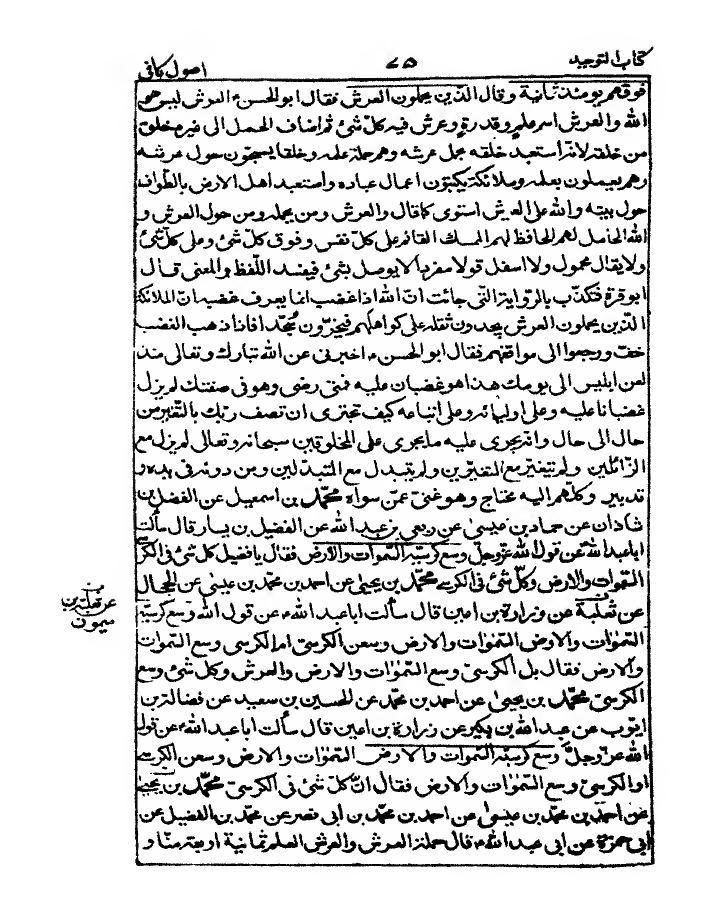 كتاب التوحيد ٧٥ اصول كافى
فوقهم يومئذ ثمانية وقال الذين يحملون العرش فقال ابو الحسن ع العرش ليس هو
الله والعرش اسم علم وقدرة وعرش فيه كل شئ ثم اضاف الحمل الى غيره خلق
من خلقه لانه استعبد خلقه بحمل عرشه وهم حملة علمه وخلقا يسبحون حول عرشه
وهم يعملون بعلمه وملائكة يكتبون اعمال عباده واستعبد اهل الارض بالطواف
حول بيته والله على العرش استوى كما قال والعرش ومن يحمله ومن حول العرش و
الله الحامل لهم الحافظ لهم الممسك القائم على كل نفس وفوق كل شئ وعلى كل شئ
ولا يقال محمول ولا اسفل قولا مفردا لا يوصل بشئ فيفسد اللفظ والمعنى قال
ابو قرة فتكذب بالرواية التى جائت ان الله اذا غضب انما يعرف غضبه ان الملائكة
الذين يحملون العرش يجدون ثقله على كواهلهم فيخرّون سُجّدا فاذا ذهب الغضب
خفّ ورجعوا الى مواقفهم فقال ابو الحسن ع اخبرنى عن الله تبارك وتعالى منذ
لعن ابليس الى يومك هذا هو غضبان عليه فمتى رضى وهو فى صفتك لم يزل
غضبانا عليه وعلى اوليائه وعلى اتباعه كيف تجترى ان تصف ربك بالتغير من
حال الى حال وانه يجرى عليه ما يجرى على المخلوقين سبحانه وتعالى لم يزل مع
الزائلين ولم يتغير مع المتغيرين ولم يتبدل مع المتبدلين ومن دونه فى يده و
تدبيره وكلهم اليه محتاج وهو غنى عمن سواه محمد بن اسمعيل عن الفضل بن
شاذان عن حماد بن عيسى عن ربعى بن عبد الله عن الفضيل بن يسار قال سألت
ابا عبد الله ع عن قول الله عزّ وجل وسع كرسيه السموات والارض فقال يا فضيل كل شئ فى الكرسى
السموات والارض وكل شئ فى الكرسى محمد بن يحيى عن احمد بن محمد بن عيسى عن الحجال
عن ثعلبة عن زرارة بن اعين قال سألت ابا عبد الله ع عن قول الله وسع كرسيه
السموات والارض السموات والارض وسعن الكرسى ام الكرسى وسع السموات
والارض فقال بل الكرسى وسع السموات والارض والعرش وكل شئ وسع
الكرسى محمد بن يحيى عن احمد بن محمد عن الحسين بن سعيد عن فضالة بن
ايوب عن عبد الله بن بكير عن زرارة بن اعين قال سألت ابا عبد الله ع عن قول
الله عز وجل وسع كرسيه السموات والارض السموات والارض وسعن الكرسى
او الكرسى وسع السموات والارض فقال ان كل شئ فى الكرسى محمد بن يحيى
عن احمد بن محمد بن عيسى عن احمد بن محمد بن ابى نصر عن محمد بن الفضيل عن
ابى حمزة عن ابى عبد الله ع قال حملة العرش والعرش العلم ثمانية اربعة منا و
عن ثعلبة بن
ميمون